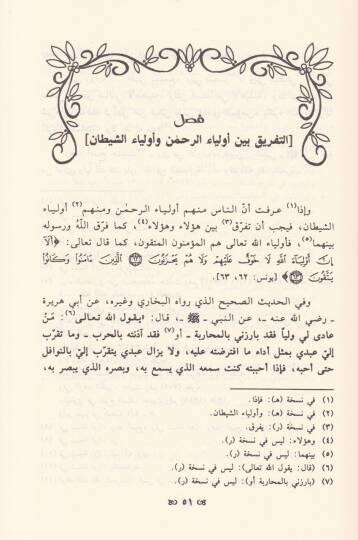 فصل
[التفريق بين أولياء الرحمٰن وأولياء الشيطان]
وإذا(١) عرفت أنّ الناس منهم أولياء الرحمٰن ومنهم(٢) أولياء
الشيطان، فيجب أن تفرّق(٣) بين هؤلاء وهؤلاء(٤)، كما فرّق اللّٰه ورسوله
بينهما(٥)، فأولياء اللّٰه تعالى هم المؤمنون المتقون، كما قال تعالى: ﴿أَلَا
إِنَّ أَوْلِيَاءَ اللَّهِ لَا خَوْفٌ عَلَيْهِمْ وَلَا هُمْ يَحْزَنُونَ ۝٦٢ الَّذِينَ ءَامَنُوا وَكَانُوا
يَتَّقُونَ ۝٦٣﴾ [يونس: ٦٢، ٦٣].
وفي الحديث الصحيح الذي رواه البخاري وغيره، عن أبي هريرة
ـ رضي اللّٰه عنه ـ، عن النبي ـ ﷺ ـ، قال: «يقول اللّٰه تعالى(٦): مَنْ
عادى لي ولياً فقد بارزني بالمحاربة ـ أو(٧) فقد آذنته بالحرب ـ وما تقرّب
إليّ عبدي بمثل أداء ما افترضته عليه، ولا يزال عبدي يتقرّب إليّ بالنوافل
حتى أحبه، فإذا أحببته كنت سمعه الذي يسمع به، وبصره الذي يبصر به،
(١) في نسخة (هـ): فإذا.
(٢) في نسخة (هـ): وأولياء الشيطان.
(٣) في نسخة (ر): يفرق.
(٤) وهؤلاء: ليس في نسخة (ر).
(٥) بينهما: ليس في نسخة (ر).
(٦) (قال: يقول اللّٰه تعالى): ليس في نسخة (ر).
(٧) (بارزني بالمحاربة أو): ليس في نسخة (ر).
٥١